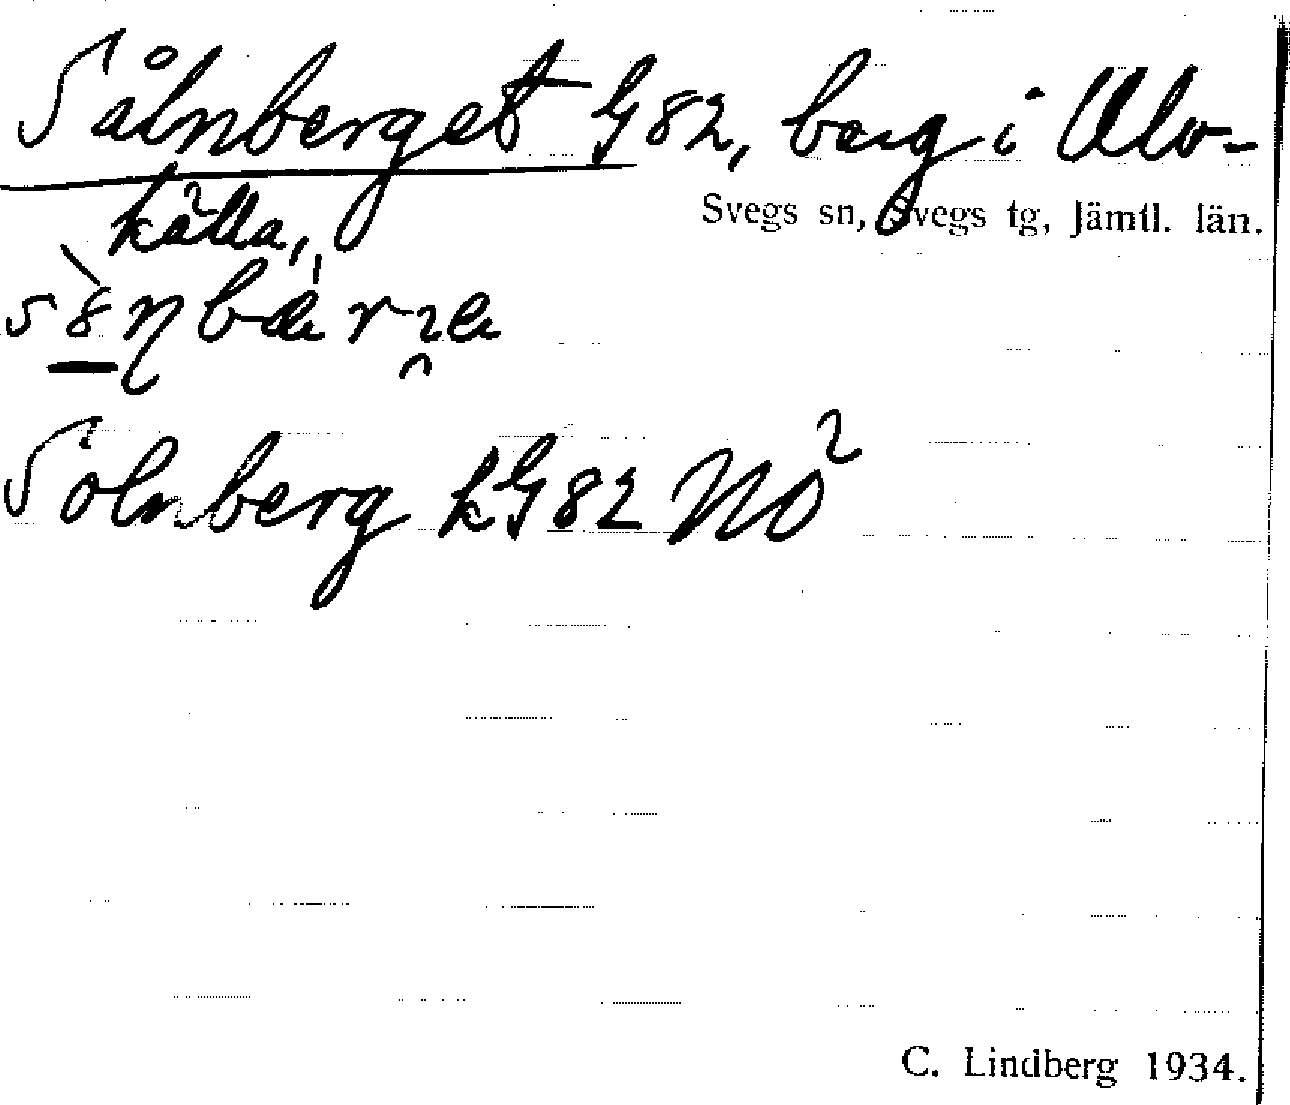 Sålnberget G82, berg i Ulv-
källa,
Svegs sn, Svegs tg, Jämtl. län.
Solnberg kG82 NO²
C. Lindberg 1934.